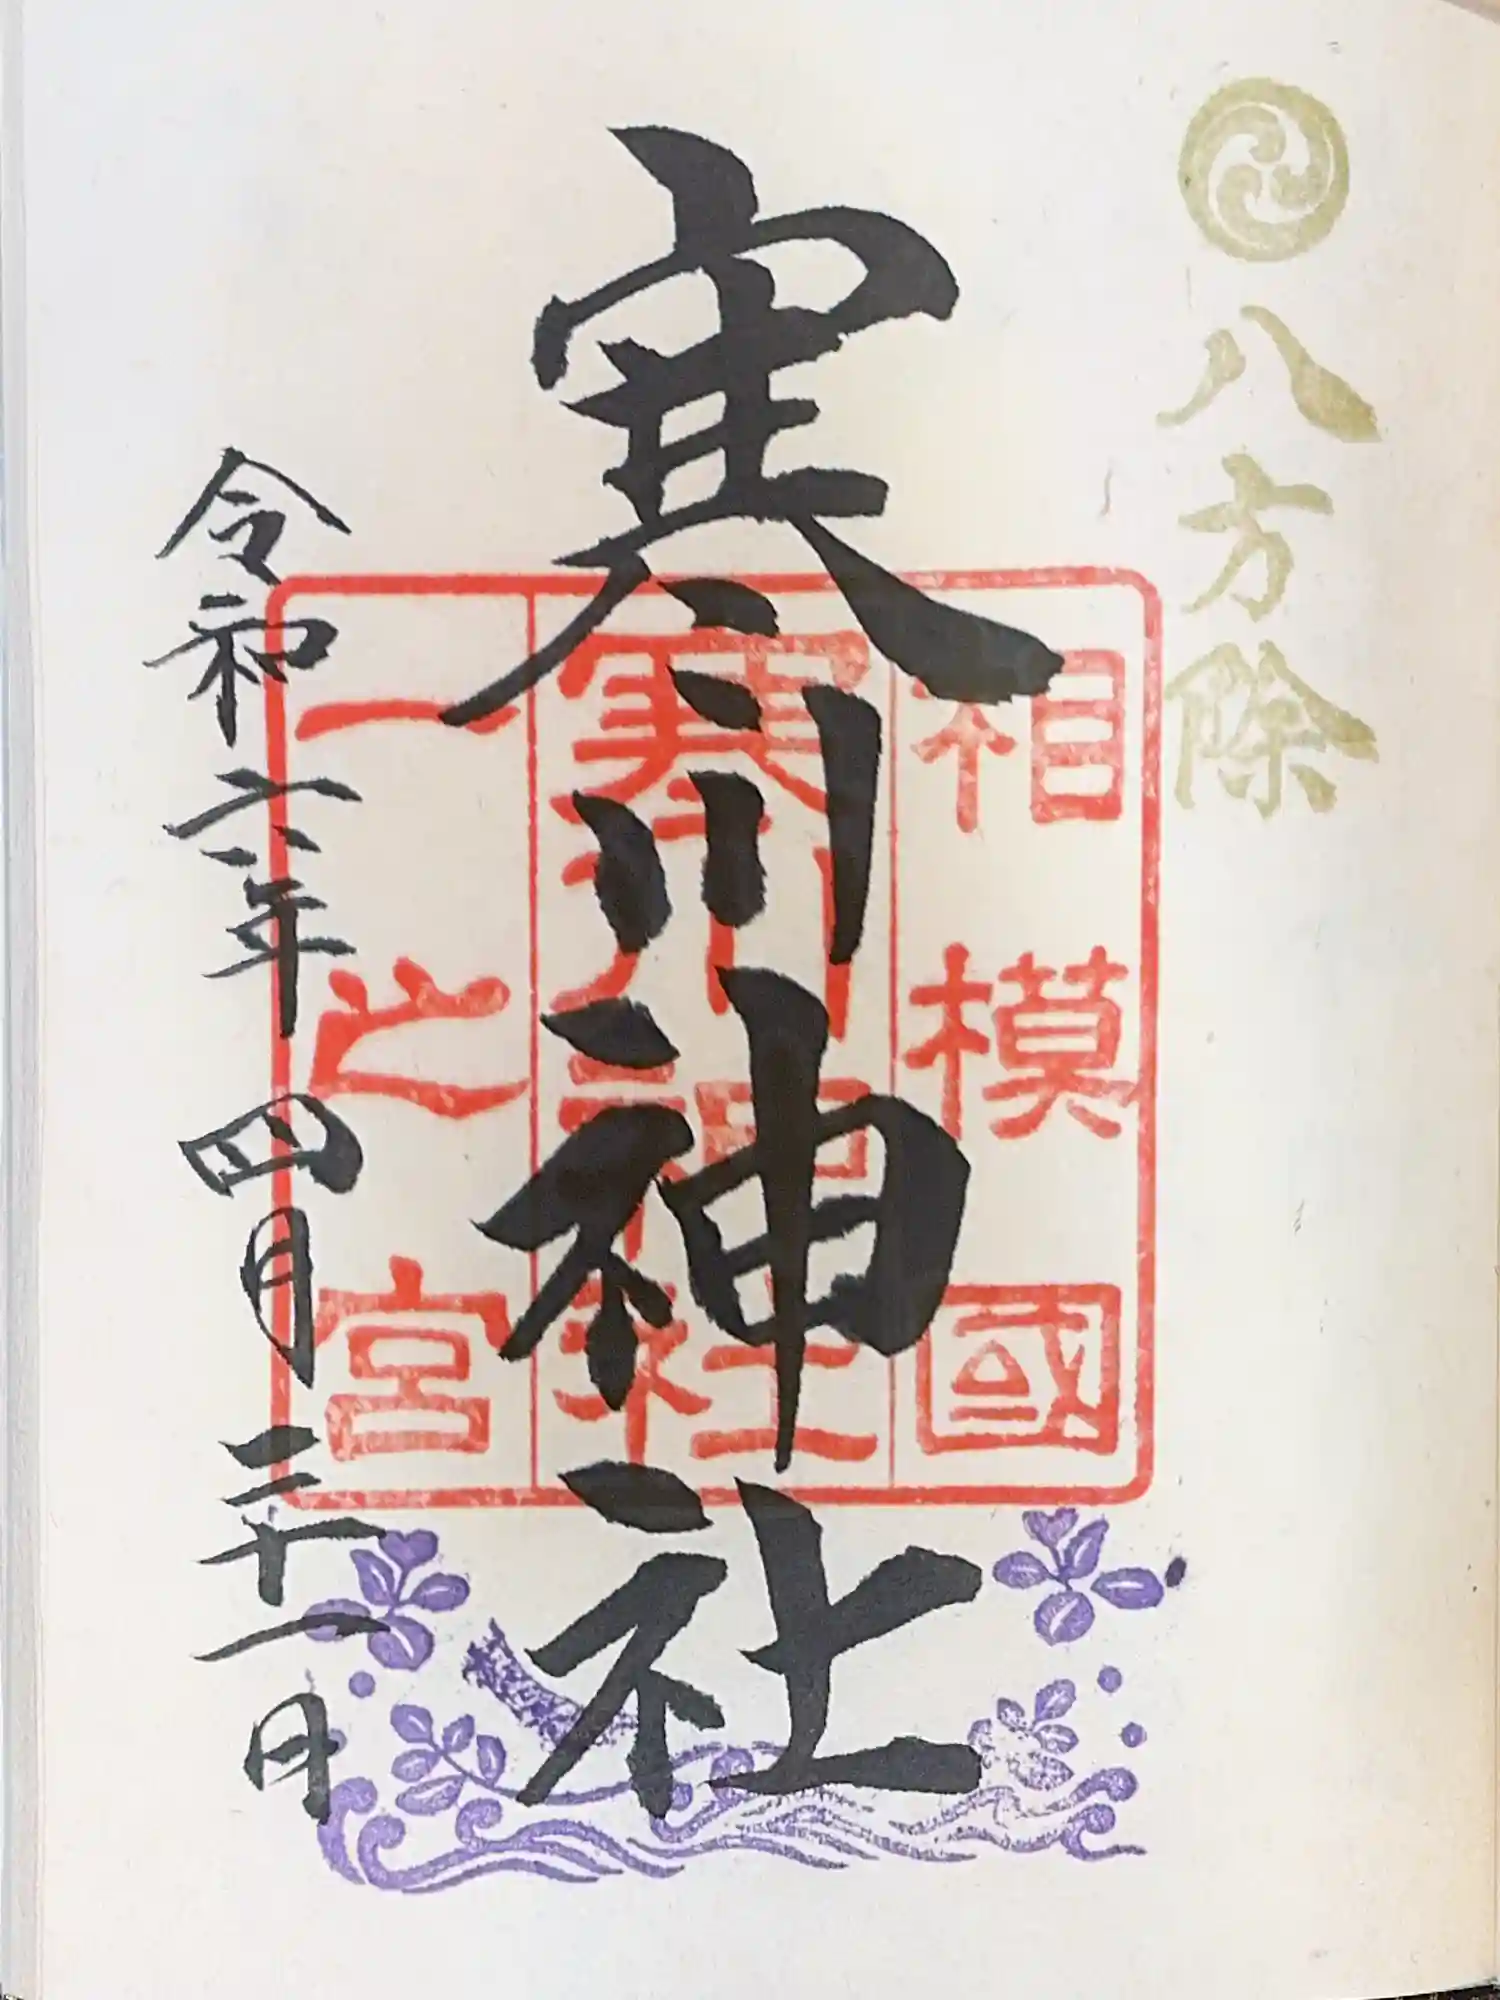 八方除
寒川神社
相模國
寒川神社
一之宮
令和六年四月二十一日